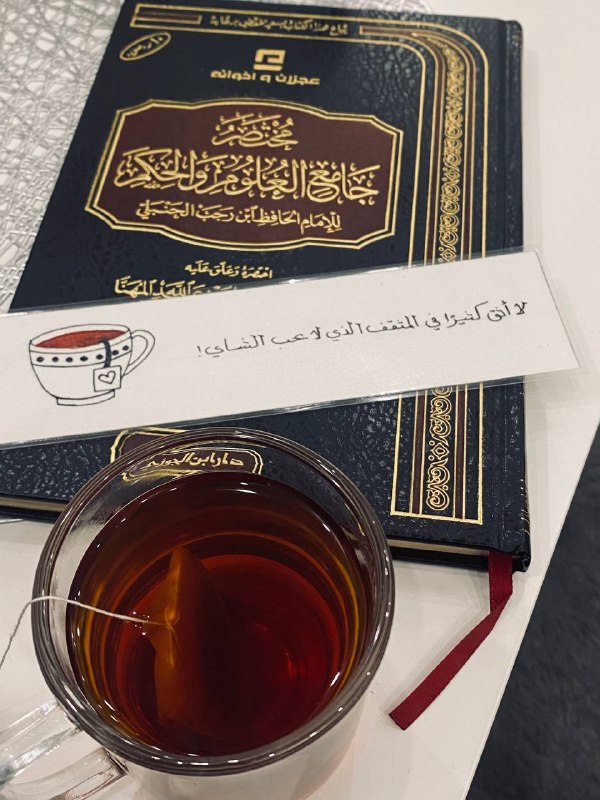 عجلان و اخوانه
مُخْتَصَرُ
جَامِعِ العُلُومِ وَالحِكَمِ
لِلإِمَامِ الحَافِظِ ابْنِ رَجَبٍ الحَنْبَلِيِّ
اختصره وعلق عليه
المهنا
لا أثق كثيرًا في المثقف الذي لا يحب الشاي!
دار ابن الجوزي